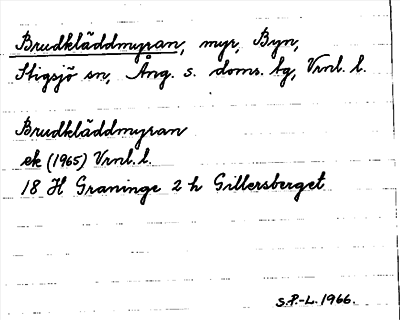 Brudkläddmyran, myr, Byn,
Stigsjö sn, Ång. s. doms. tg, Vrnl. l.
Brudkläddmyran
ek (1965) Vrnl. l.
18 H Graninge 2 h Gillersberget
S.P.-L. 1966.